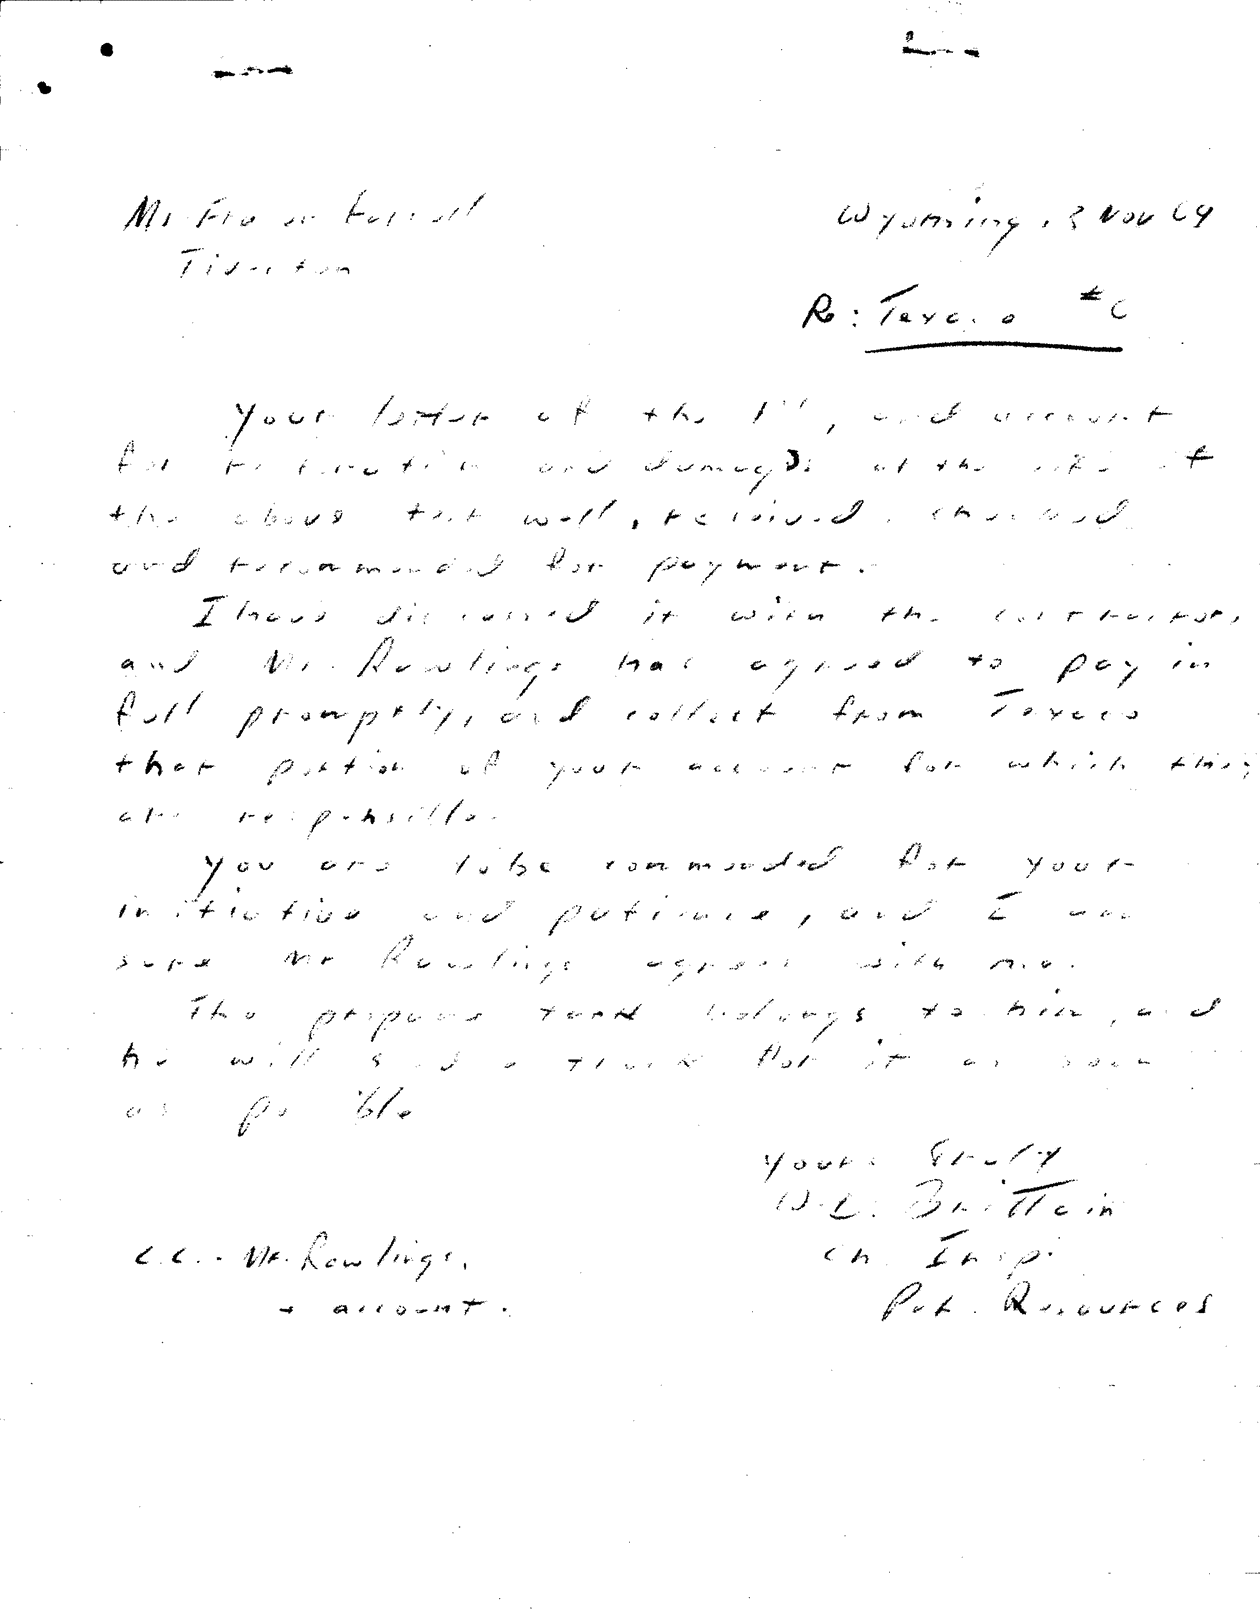 Mr
Wyoming, 3 Nov 69
Tiverton
Re: Texaco #6
Your letter of the 1st, and account
for restoration and damages at the site of
the above test well, received, checked
and recommended for payment.
I have discussed it with the contractor,
and Mr. Rawlings has agreed to pay in
full promptly, and collect from Texaco
that portion of your account for which they
are responsible.
You are to be commended for your
initiative and patience, and I am
sure Mr Rawlings agrees with me.
The propane tank belongs to him, and
he will send a truck for it as soon
as possible
Yours truly
W.L. Brittain
Ch. Insp.
Pet. Resources
C.C. - Mr. Rawlings,
+ account.